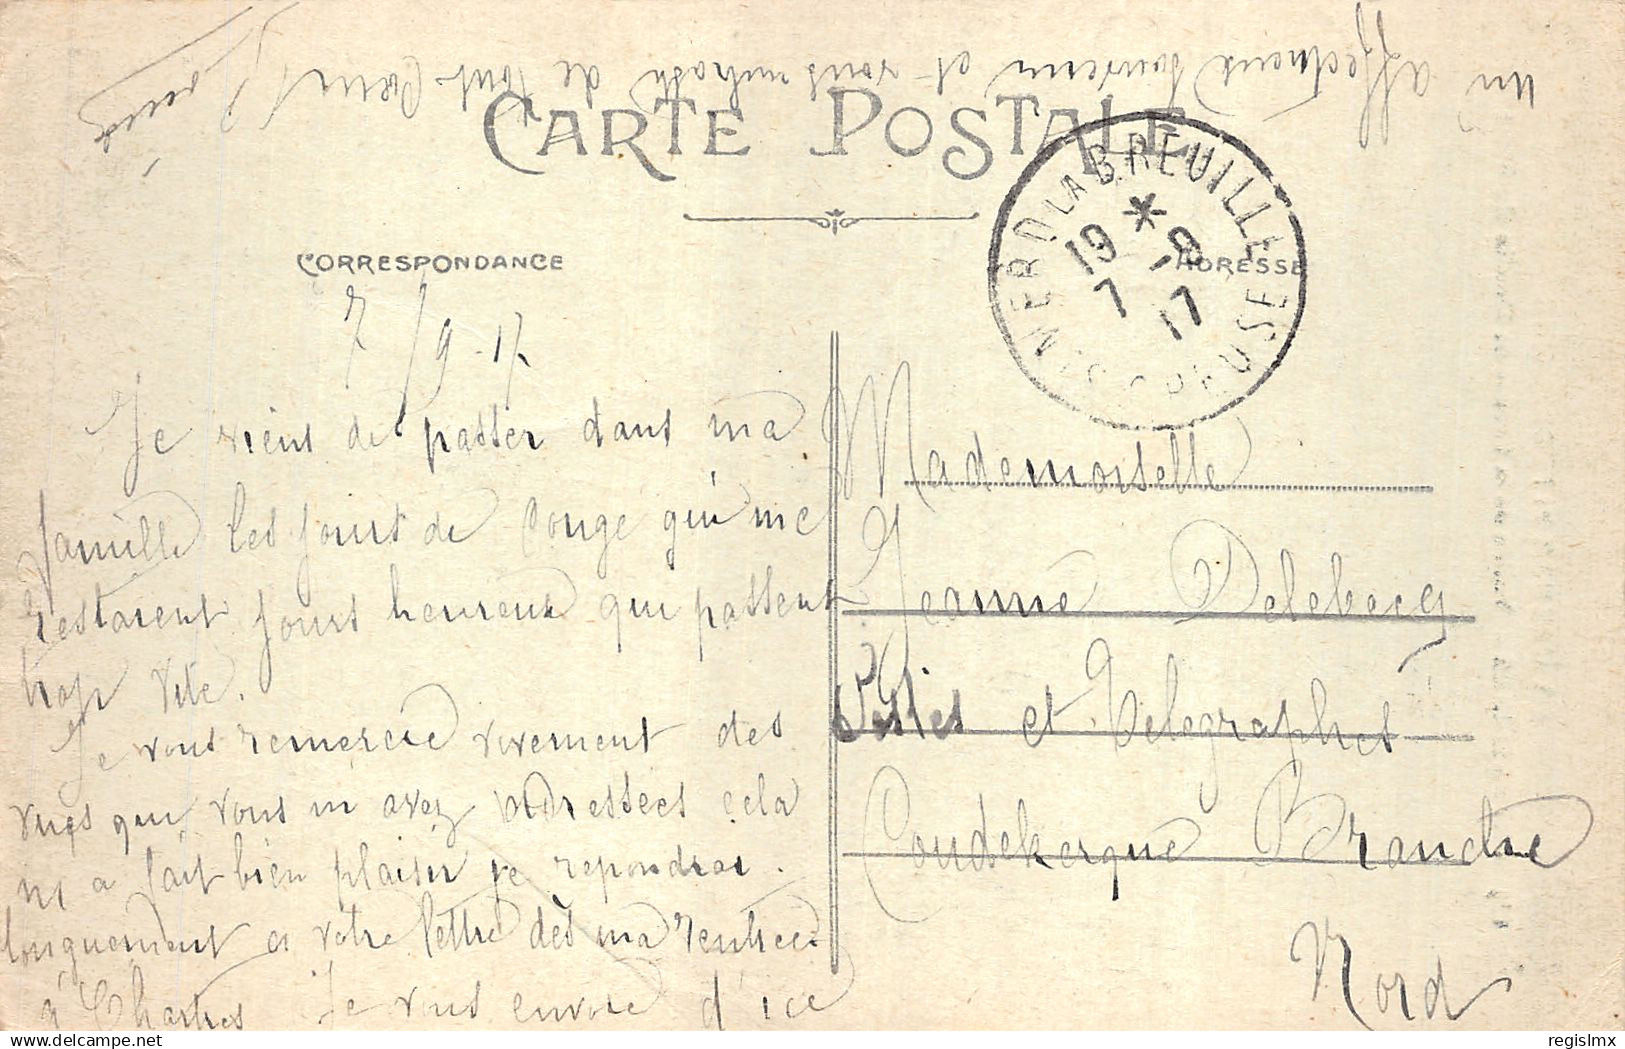 un affectueux souvenir et vous embrasse de tout Cœur
CARTE POSTALE
CORRESPONDANCE
ADRESSE
MERD LA BREUILLE
19 * -9
7 17
CREUSE
7/9-17
Je viens de passer dans ma
famille les jours de Conge qui me
restaient jours heureux qui passent
trop vite.
Je vous remercie vivement des
vues que vous m avez adressées cela
m a fait bien plaisir je repondrai
longuement a votre lettre dès ma rentrée
à Chartres Je vous envoie d'ice
Mademoiselle
Jeanne Delebecq
Postes et Telegraphes
Coudekerque Branche
Nord
delcampe.net
regislmx